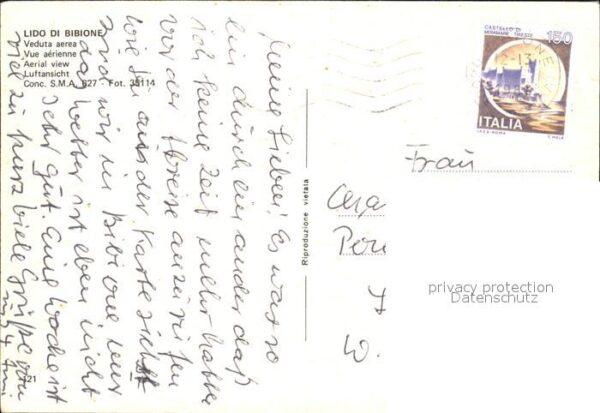 LIDO DI BIBIONE
Veduta aerea
Vue aérienne
Aerial view
Luftansicht
Conc. S.M.A. 627 - Fot. 35114
Meine Lieben! Es war so
ein durcheinander daß
ich keine Zeit mehr hatte
vor der Abreise anzurufen
wie du aus der Karte siehst
sind wir in Bibione nur
das Wetter ist eben nicht
sehr gut. Eine Woche ist
viel zu kurz viele Grüße von
21
Riproduzione vietata
CASTELLO DI
MIRAMARE - TRIESTE
150
ITALIA
I.P.Z.S. ROMA
Frau
privacy protection
Datenschutz